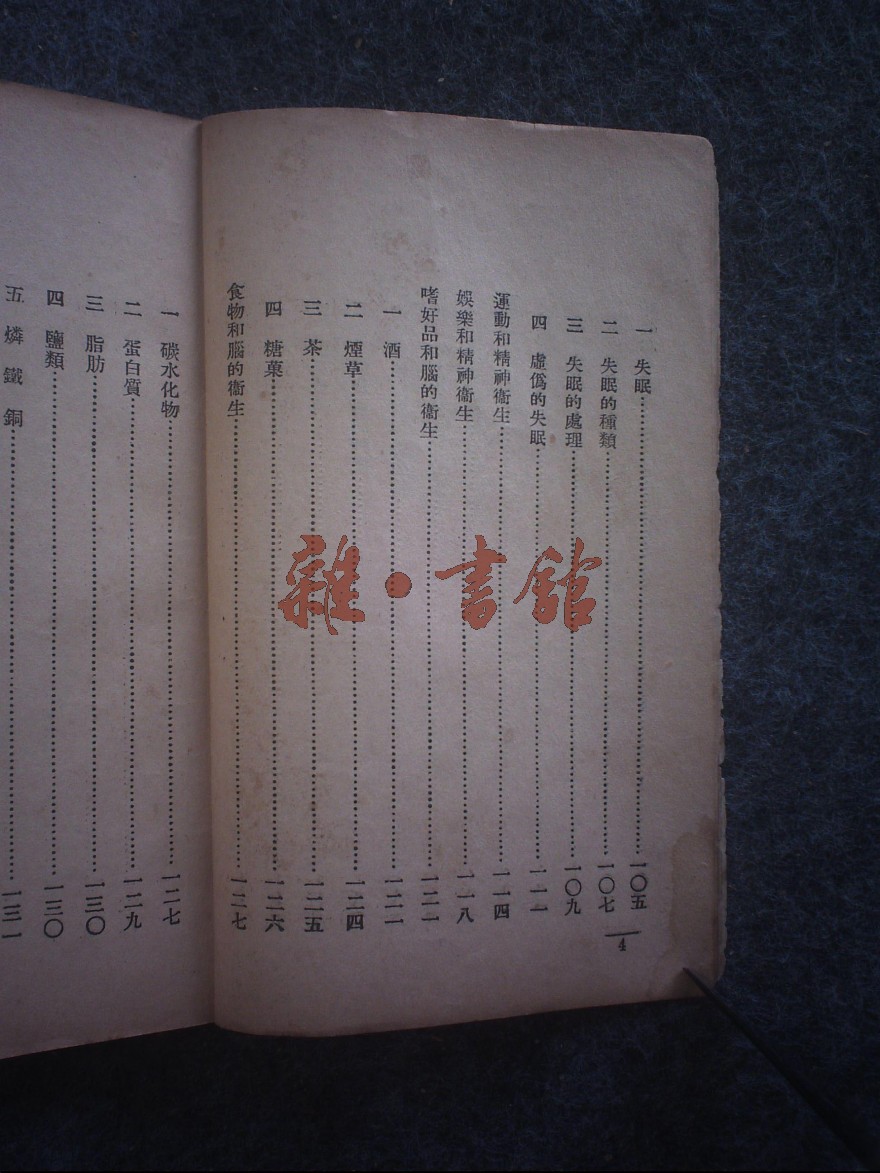 一 失眠……一〇五
二 失眠的種類……一〇七
三 失眠的處理……一〇九
四 虛僞的失眠……一一一
運動和精神衞生……一一四
娛樂和精神衞生……一一八
嗜好品和腦的衞生……一二一
一 酒……一二一
二 煙草……一二四
三 茶……一二五
四 糖菓……一二六
食物和腦的衞生……一二七
4
一 碳水化物……一二七
二 蛋白質……一二九
三 脂肪……一三〇
四 鹽類……一三〇
五 燐 鐵 銅……一三一
雜·書館